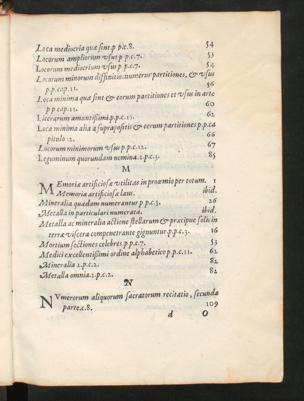 Loca mediocria quæ sint p p.c.8. 54
Locorum ampliorum vsus p p.c.7. 53
Locorum mediocrium vsus p p.c.7. 54
Locorum minorum diffinitio.numerus partitiones, & vsus
p.p.cap.11. 56
Loca minima quæ sint & eorum partitiones et vsus in arte
p p cap.13. 60
Literarum amantissimi p.p.c.15. 62
Loca minima alia a suprapositis & eorum partitiones p.p.ca
pitulo 12. 66
Locorum minimorum vsus p.p.c.12. 67
Leguminum quorundam nomina.2.p.c.3. 85
M
MEmoriæ artificiosæ vtilitas in proœmio per totum. 1
Memoriæ artificiosæ laus. ibid.
Mineralia quædam numerantur p p.c.3. 26
Metalla in particulari numerata. ibid.
Metalla ac mineralia actione stellarum & præcipue solis in
terræ viscera compenetrante giguuntur p.p.c.3. 16
Mortium sectiones celebres p.p.c.7. 53
Medici excellentissimi ordine alphabetico p p.c.11. 62
Mineralia 2.p.c.2. 82
Metalla omnia.2.p.c.2. 82
N
NVmerorum aliquorum sacratorum recitatio, secunda
parte.c.8. 109
d O